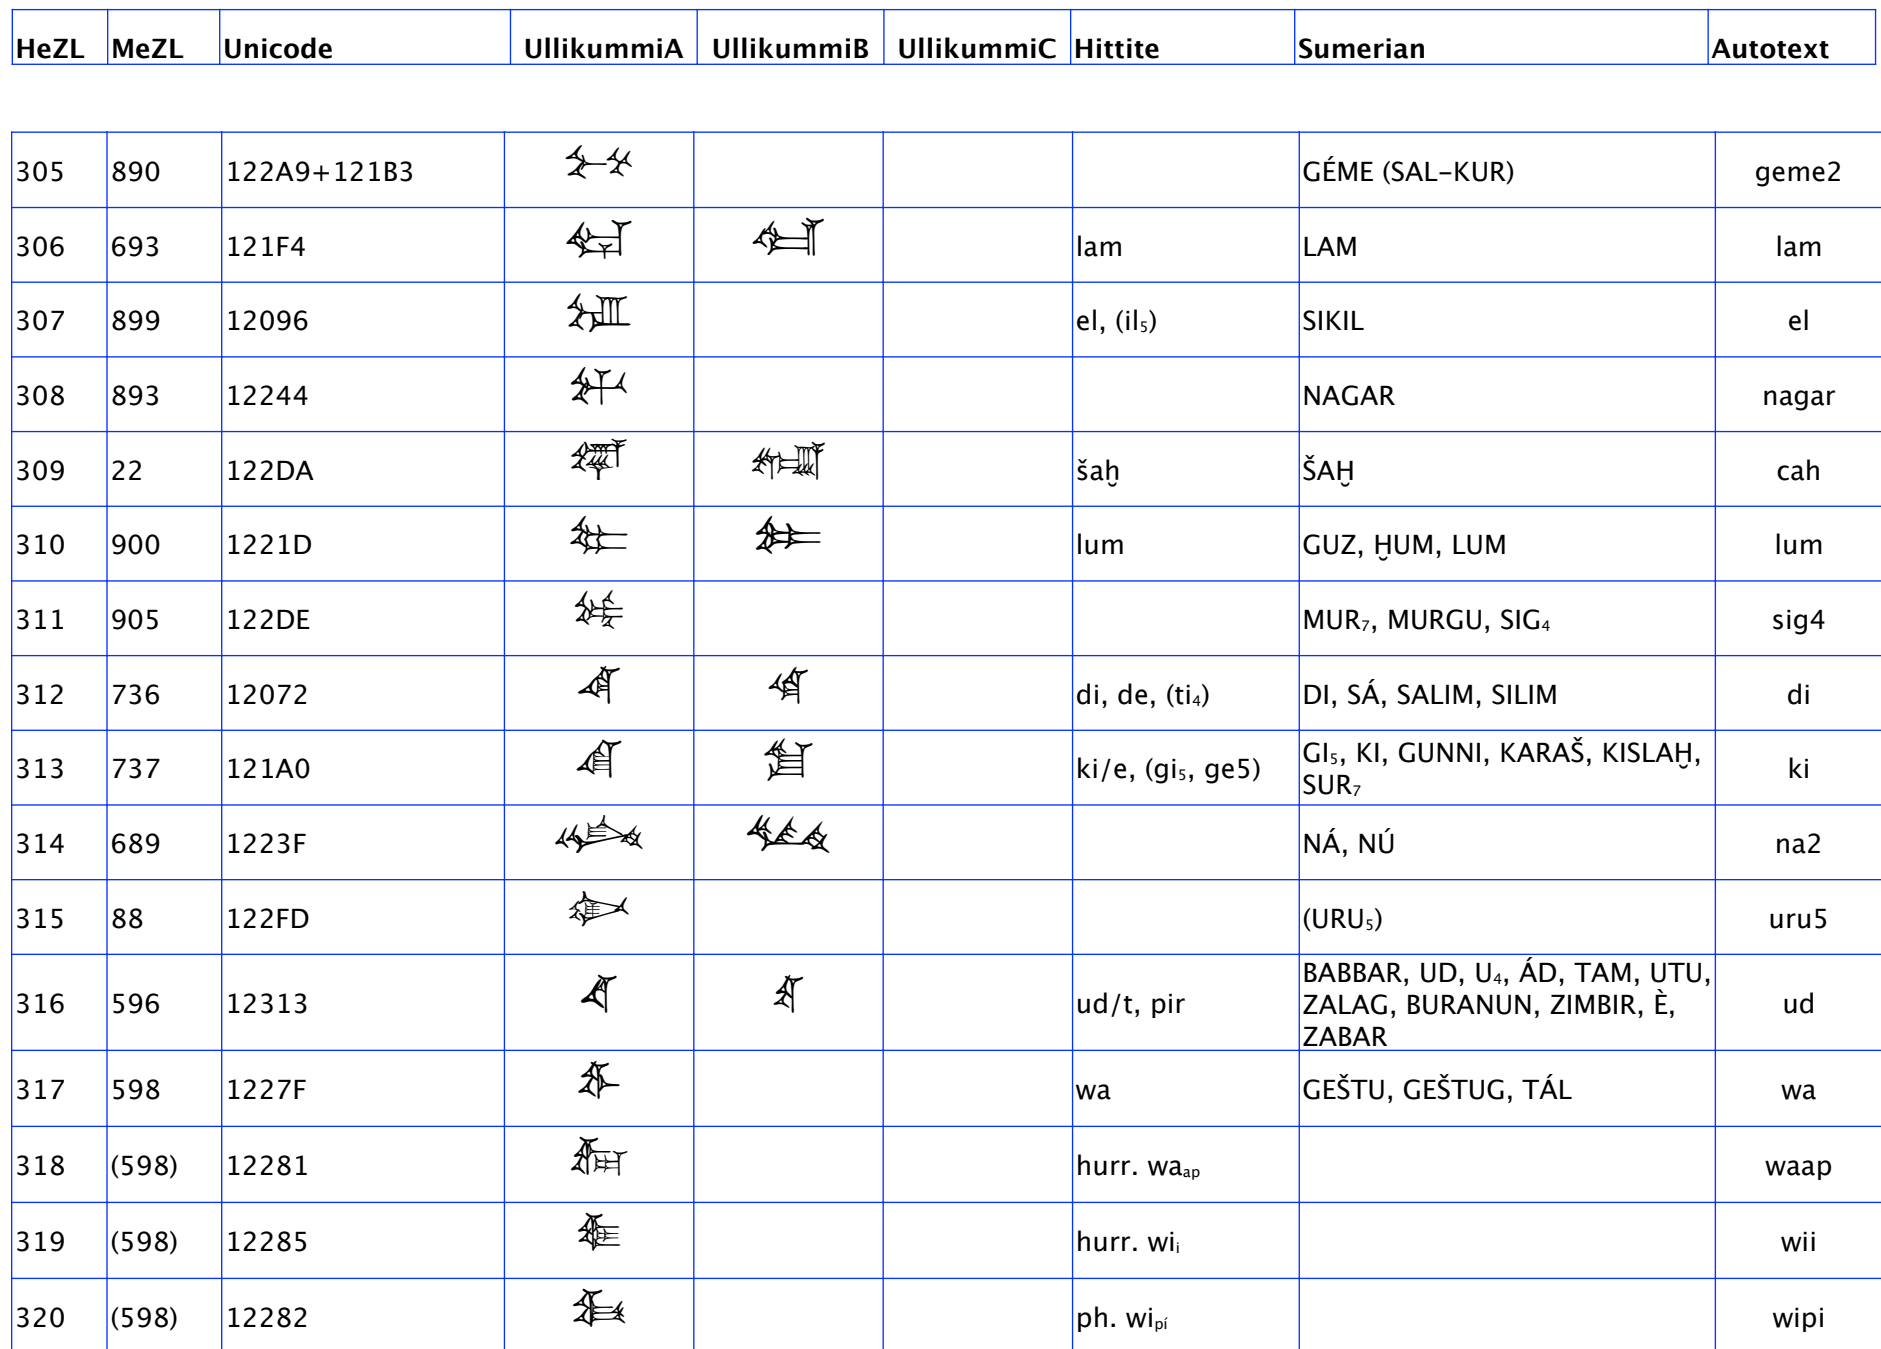 HeZL MeZL Unicode UllikummiA UllikummiB UllikummiC Hittite Sumerian Autotext
305 890 122A9+121B3 𒊩𒆳 GÉME (SAL-KUR) geme2
306 693 121F4 𒇴 𒇴 lam LAM lam
307 899 12096 𒂖 el, (il₅) SIKIL el
308 893 12244 𒉄 NAGAR nagar
309 22 122DA 𒋚 𒋚 šaḫ ŠAḪ cah
310 900 1221D 𒈝 𒈝 lum GUZ, ḪUM, LUM lum
311 905 122DE 𒋞 MUR₇, MURGU, SIG₄ sig4
312 736 12072 𒁲 𒁲 di, de, (ti₄) DI, SÁ, SALIM, SILIM di
313 737 121A0 𒆠 𒆠 ki/e, (gi₅, ge5) GI₅, KI, GUNNI, KARAŠ, KISLAḪ, ki
SUR₇
314 689 1223F 𒈿 𒈿 NÁ, NÚ na2
315 88 122FD 𒋽 (URU₅) uru5
BABBAR, UD, U₄, ÁD, TAM, UTU,
316 596 12313 𒌓 𒌓 ud/t, pir ZALAG, BURANUN, ZIMBIR, È, ud
ZABAR
317 598 1227F 𒉿 wa GEŠTU, GEŠTUG, TÁL wa
318 (598) 12281 𒊁 hurr. waₐₚ waap
319 (598) 12285 𒊅 hurr. wiᵢ wii
320 (598) 12282 𒊂 ph. wipí wipi